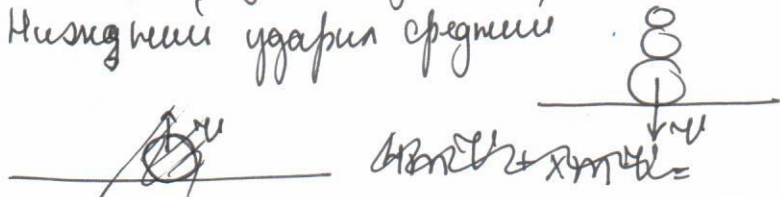 Нижний ударил средний
v
v